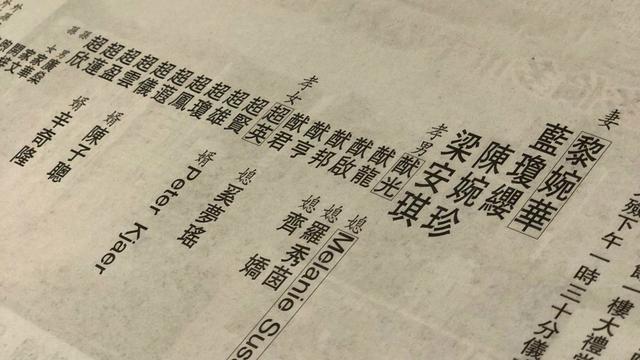 館一樓大禮堂
下午一時三十分儀
妻
黎婉華
藍瓊纓
陳婉珍
梁安琪
孝男
猷光
猷龍
猷啟
猷邦
猷亨
猷君
媳 Melanie Sus
媳 羅秀茵
媳 齊 嬌
媳 奚夢瑤
孝女
超英
超賢
超雄
超瓊
超鳳
超蕸
超儀
超雲
超盈
超蓮
超欣
婿 Peter Kjaer
婿 陳子聰
婿 辛奇隆
孫男
孫女